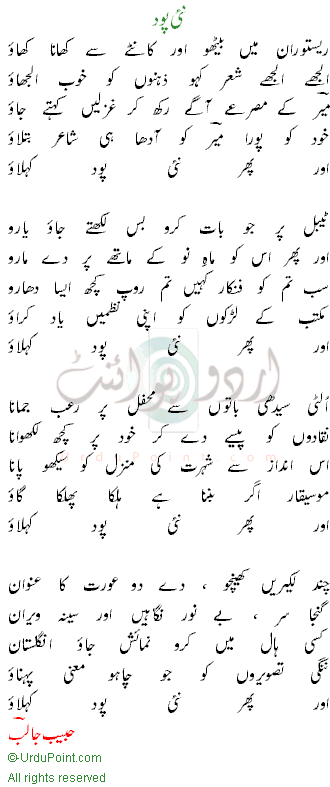 نئی پود
ریستوران میں بیٹھو اور کانٹے سے کھانا کھاؤ
الجھے الجھے شعر کہو ذہنوں کو خوب الجھاؤ
میرؔ کے مصرعے آگے رکھ کر غزلیں کہتے جاؤ
خود کو پورا میرؔ کو آدھا ہی شاعر بتلاؤ
اور پھر نئی پود کہلاؤ
ٹیبل پر جو بات کرو بس لکھتے جاؤ یارو
اور پھر اس کو ماہِ نو کے ماتھے پر دے مارو
سب تم کو فنکار کہیں تم روپ کچھ ایسا دھارو
مکتب کے لڑکوں کو اپنی نظمیں یاد کراؤ
اور پھر نئی پود کہلاؤ
اُلٹی سیدھی باتوں سے محفل پر رعب جمانا
نقادوں کو پیسے دے کر خود پر کچھ لکھوانا
اس انداز سے شہرت کی منزل کو سیکھو پانا
موسیقار اگر بننا ہے ہلکا پھلکا گاؤ
اور پھر نئی پود کہلاؤ
چند لکیریں کھینچو ، دے دو عورت کا عنوان
گنجا سر ، بے نور نگاہیں اور سینہ ویران
کسی ہال میں کرو نمائش جاؤ انگلستان
ننگی تصویروں کو جو چاہو معنی پہناؤ
اور پھر نئی پود کہلاؤ
حبیب جالبؔ
©-UrduPoint.com
All rights reserved
اردو پوائنٹ
UrduPoint.com